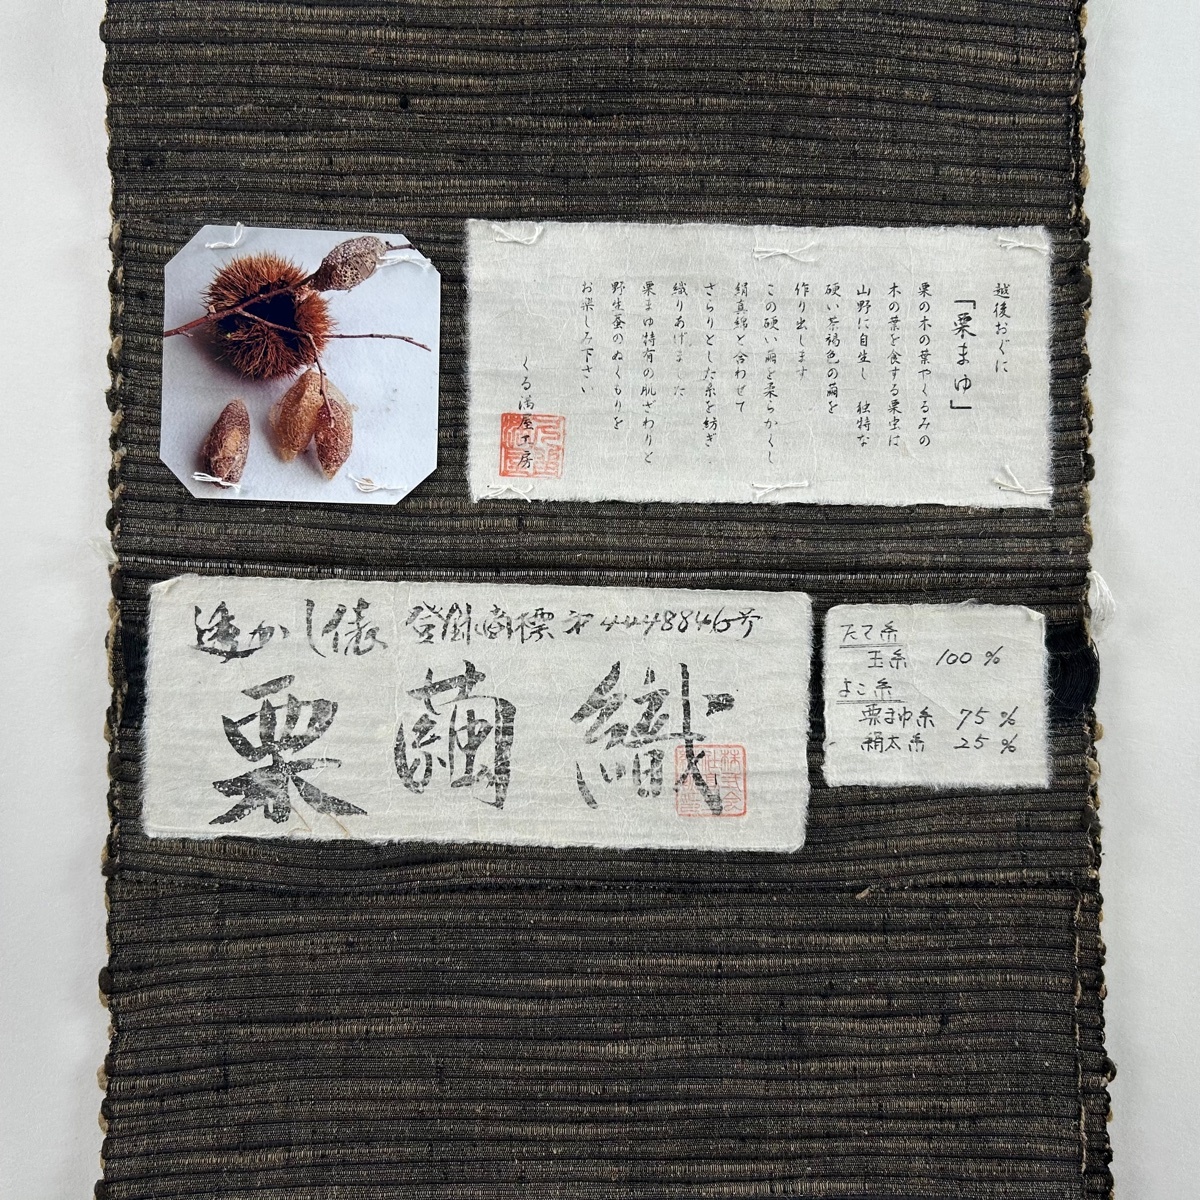 越後おぐに
「栗まゆ」
栗の木の葉やくるみの
木の葉を食する栗虫は
山野に自生し 独特な
硬い茶褐色の繭を
作り出します
この硬い繭を柔らかくし
絹真綿と合わせて
さらりとした糸を紡ぎ
織りあげました
栗まゆ特有の肌ざわりと
野生蚕のぬくもりを
お楽しみ下さい
くる満屋工房
透かし俵 登録商標 第4448846号
栗繭織
株式会
たて糸
玉糸 100%
よこ糸
栗まゆ糸 75%
絹太糸 25%